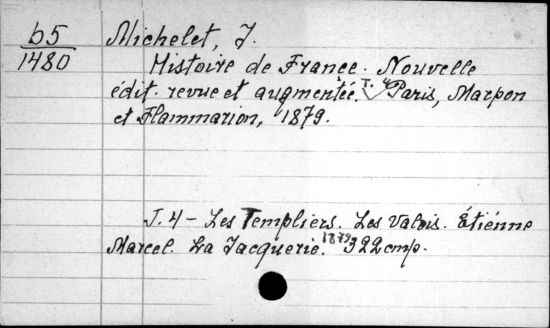 b5
1480
Michelet, J.
Histoire de France. Nouvelle
édit. revue et augmentée. T. 4 Paris, Marpon
et Flammarion, 1879.
T. 4 – Les Templiers. Les Valois. Étiénne
Marcel. La Jacquerie. 1879 322 cmp.